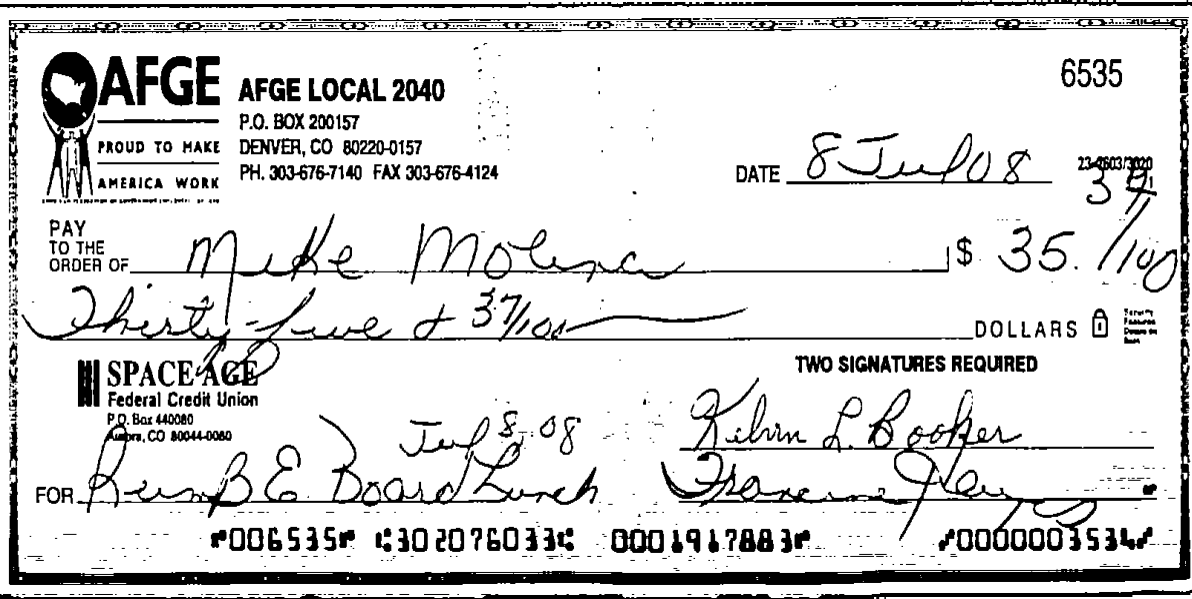 AFGE
PROUD TO MAKE
AMERICA WORK
AFGE LOCAL 2040
P.O. BOX 200157
DENVER, CO 80220-0157
PH. 303-676-7140 FAX 303-676-4124
6535
DATE 8 Jul 08
PAY
TO THE
ORDER OF Mike Molina $ 35. /100
Thirty-five & 37/100 DOLLARS
SPACE AGE
Federal Credit Union
P.O. Box 440080
Aurora, CO 80044-0080
TWO SIGNATURES REQUIRED
Jul 8, 08
Kelvin L. Booker
FOR Reimb E Board Lunch Francine
⑈006535⑈ ⑆302076033⑆ 0001917883⑈ ⑇0000003534⑇